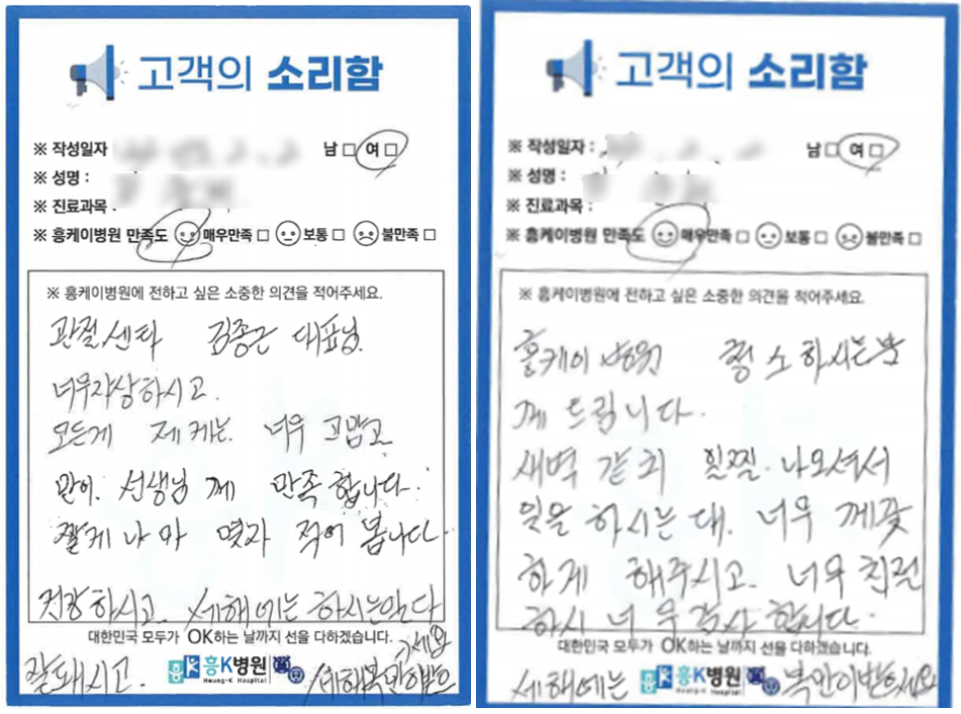 고객의 소리함
※ 작성일자
남 □ 여 □
※ 성명 :
※ 진료과목 :
※ 흥케이병원 만족도 매우만족 □ 보통 □ 불만족 □
※ 흥케이병원에 전하고 싶은 소중한 의견을 적어주세요.
관절센타 김종근 대표님.
너우자상하시고.
모든게 제게는. 너우 고맙고.
많이. 선생님께 만족합니다.
짧게나마 몇자 적어 봅니다.
건강하시고. 세해에는 하시는일 다
대한민국 모두가 OK하는 날까지 선을 다하겠습니다.
잘돼시고.
흥K병원
Heung-K Hospital
세해복만이받으세요
고객의 소리함
※ 작성일자 :
남 □ 여 □
※ 성명 :
※ 진료과목 :
※ 흥케이병원 만족도 매우만족 □ 보통 □ 불만족 □
※ 흥케이병원에 전하고 싶은 소중한 의견을 적어주세요.
흥케이 청소하시는분
께 드립니다.
새벽 같이 일찍. 나오셔서
일을 하시는대. 너무 께끗
하게 해주시고. 너무 친절
하시 너무 감사합니다.
대한민국 모두가 OK하는 날까지 선을 다하겠습니다.
세해에는
흥K병원
Heung-K Hospital
복만이받으세요